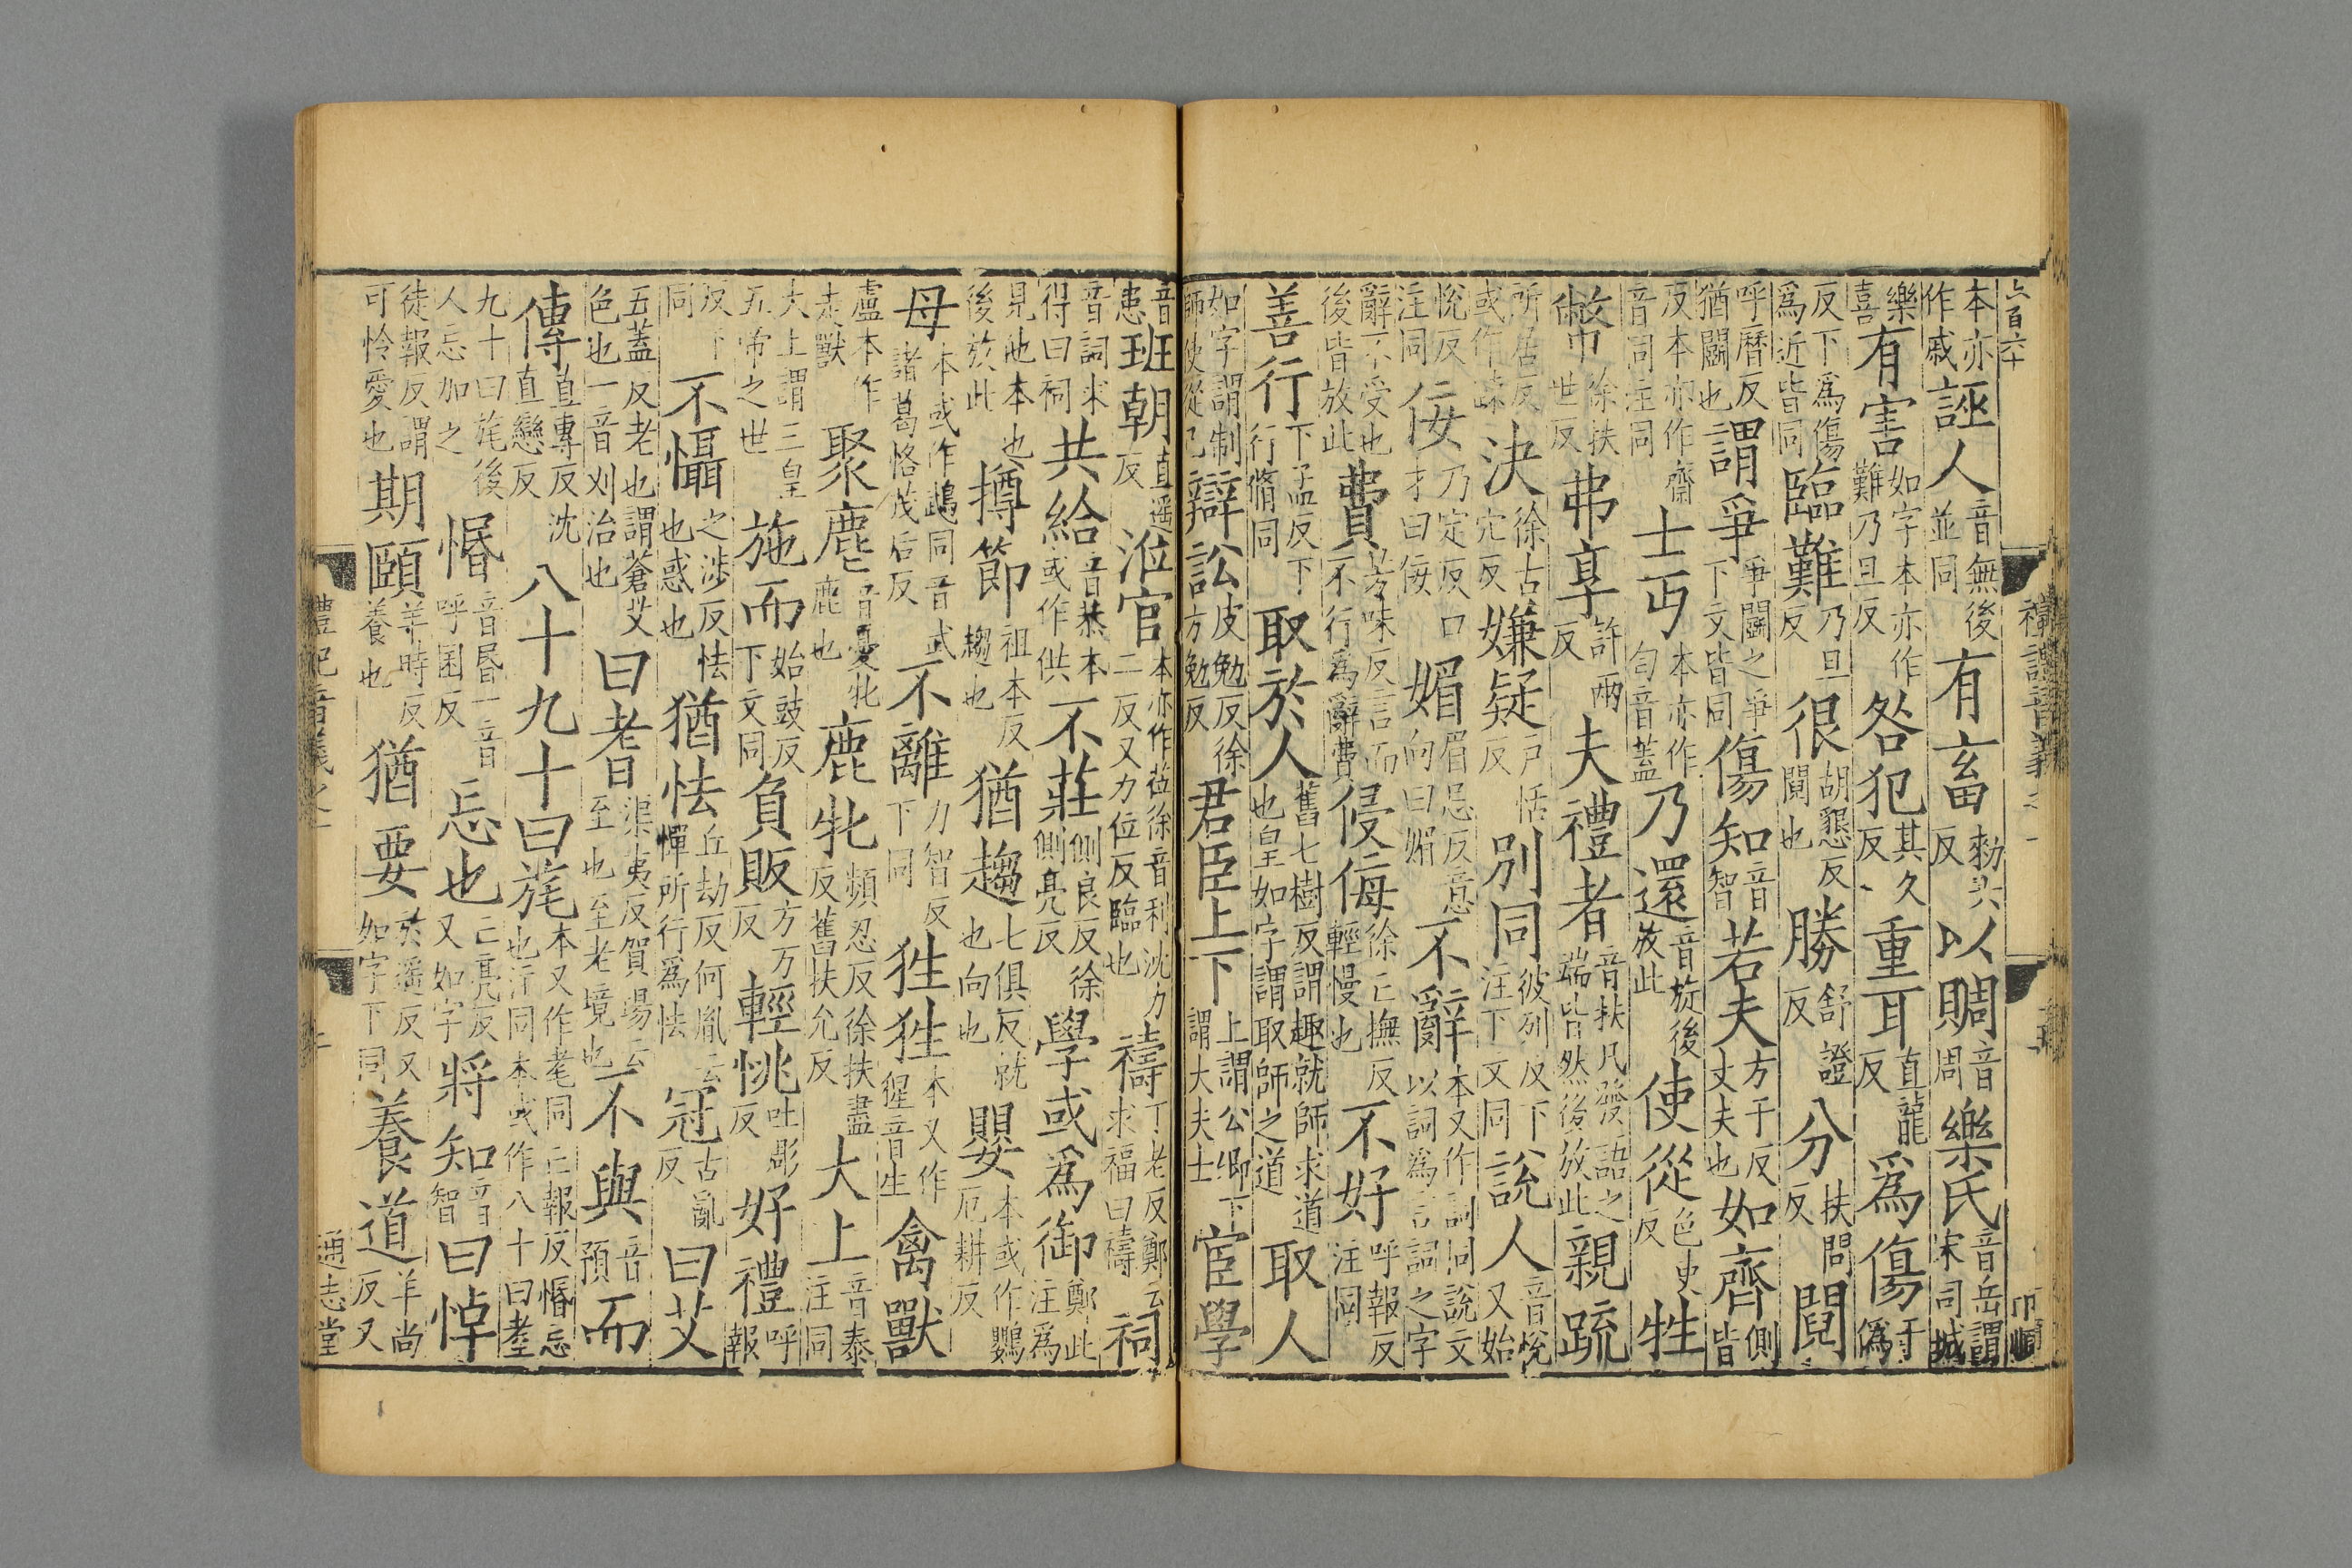 六百六十 禮記音義之一 二 印順
本亦作戚 誣人 音無後並同 有畜 勑六反 以賙 音周 樂氏 音岳謂宋司城
樂喜 有害 如字本亦作難乃旦反 咎犯 其久反 重耳 直龍反 爲傷 于僞
反下爲傷爲近皆同 臨難 乃旦反 很 胡懇反鬩也 勝 舒證反 分 扶問反 鬩
呼曆反猶鬭也 謂爭 爭鬭之爭下文皆同 傷知 音智 若夫 方于反丈夫也 如齊 側皆
反本亦作齋音同注同 士丐 本亦作匄音蓋 乃還 音旋後放此 使從 色吏反 牲
幣 徐扶世反 弗享 許兩反 夫禮者 音扶凡發語之端皆然後放此 親疏
所居反或作疎 決 徐古穴反 嫌疑 戶恬反 別同 彼列反下注下文同 說人 音悅又始
悅反注同 佞 乃定反口才曰佞 媚 眉忌反意向曰媚 不辭 本又作詞同說文以詞爲言詞之字
辭不受也後皆放此 費 芳味反言而不行爲辭費 侵侮 徐亡撫反輕慢也 不好 呼報反注同
善行 下孟反下行脩同 取於人 舊七樹反謂趣就師求道也皇如字謂取師之道 取人
如字謂制師使從己 辯訟 皮勉反徐方勉反 君臣上下 上謂公卿下謂大夫士 宦學
音患 班朝 直遥反 涖官 本亦作莅徐音利沈力二反又力位反臨也 禱 丁老反鄭云求福曰禱 祠
音詞求得曰祠 共給 音恭本或作供 不莊 側良反徐側亮反 學或爲御 鄭此注爲
見他本也後放此 撙節 祖本反趨也 猶趨 七俱反就也向也 嬰 本或作鸚厄耕反
母 本或作鵡同音武諸葛恪茂后反 不離 力智反下同 狌狌 本又作猩音生 禽獸
盧本作走獸 聚麀 音憂牝鹿也 鹿牝 頻忍反徐扶盡反舊扶允反 大上 音泰注同
大上謂三皇五帝之世 施而 始豉反下文同 負販 方万反 輕恌 吐彫反 好禮 呼報
反下同 不懾 之涉反怯也惑也 猶怯 丘劫反何胤云憚所行爲怯 冠 古亂反 曰艾
五蓋反老也謂蒼艾色也一音刈治也 曰耆 渠夷反賀瑒云至也至老境也 不與 音預 而
傳 直專反沈直戀反 八十九十曰旄 本又作耄同亡報反惽忘也注同本或作八十曰耋
九十曰旄後人忘加之 惽 音昏一音呼困反 忘也 亡亮反又如字 將知 音智 曰悼
徒報反謂可怜愛也 期頤 羊時反養也 猶要 於遥反又如字下同 養道 羊尚反又
禮記音義之一 二 通志堂